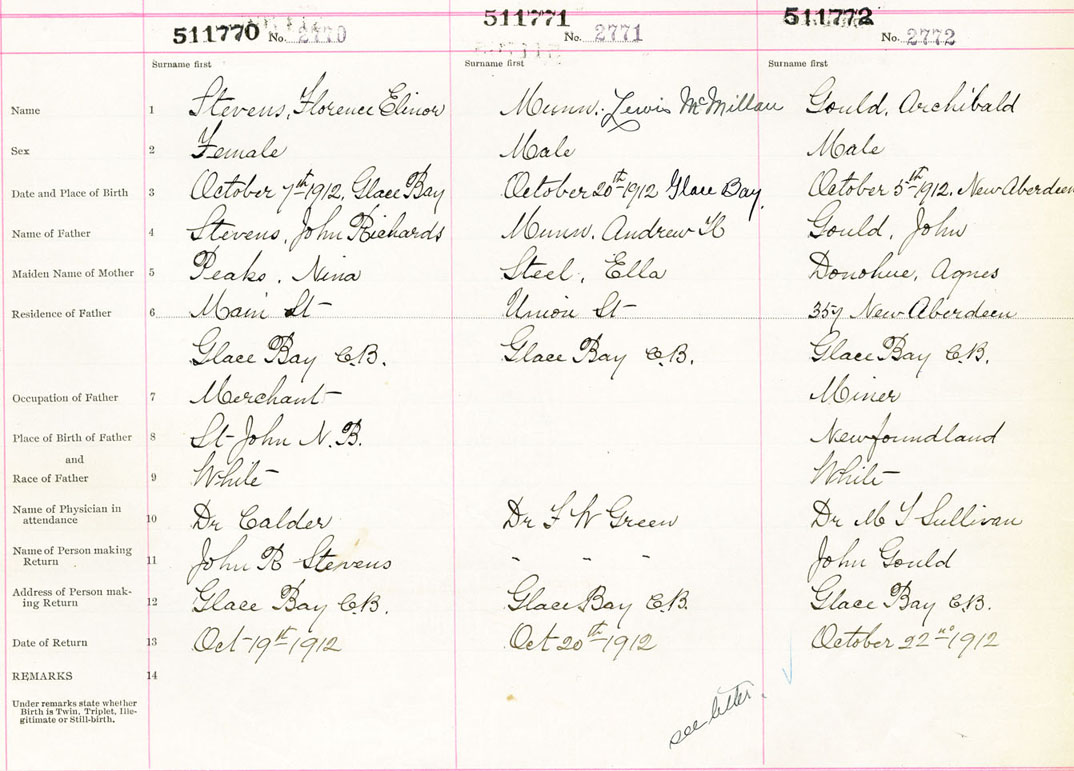 511770 No. 2770 511771 No. 2771 511772 No. 2772
Surname first Surname first Surname first
Name 1 Stevens, Florence Elinor Munn. Lewis McMillan Gould, Archibald
Sex 2 Female Male Male
Date and Place of Birth 3 October 7th 1912, Glace Bay October 20th 1912 Glace Bay. October 5th 1912, New Aberdeen
Name of Father 4 Stevens, John Richards Munn. Andrew H Gould, John
Maiden Name of Mother 5 Peaks, Nina Steel, Ella Donohue, Agnes
Residence of Father 6 Main St Union St 357 New Aberdeen
Glace Bay C.B. Glace Bay C.B. Glace Bay C.B.
Occupation of Father 7 Merchant Miner
Place of Birth of Father 8 St John N.B. Newfoundland
and
Race of Father 9 White White
Name of Physician in
attendance 10 Dr Calder Dr F W Green Dr M T Sullivan
Name of Person making
Return 11 John R Stevens - - - John Gould
Address of Person mak-
ing Return 12 Glace Bay C.B. Glace Bay C.B. Glace Bay C.B.
Date of Return 13 Oct 19th 1912 Oct 20th 1912 October 22nd 1912
REMARKS 14
Under remarks state whether
Birth is Twin, Triplet, Ille-
gitimate or Still-birth.
see letter.